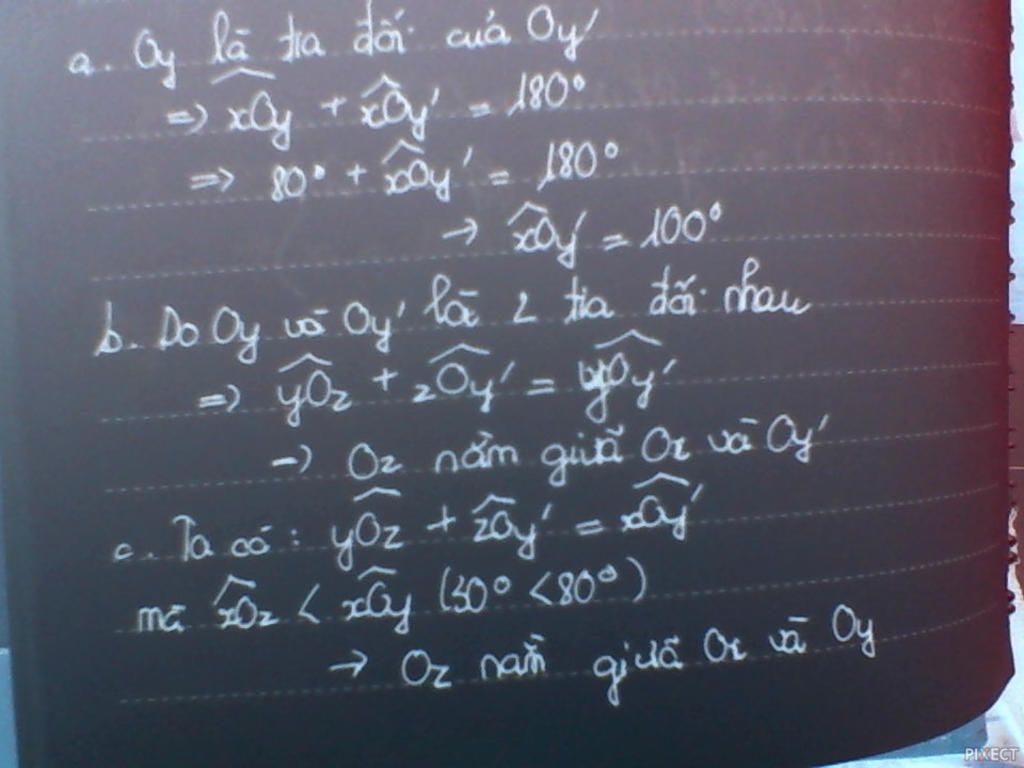 a. Oy là tia đối của Oy'
=> xOy + xOy' = 180°
=> 80° + xOy' = 180°
→ xOy' = 100°
b. Do Oy và Oy' là 2 tia đối nhau
=> yOz + zOy' = yOy'
→ Oz nằm giữa Ox và Oy'
c. Ta có: yOz + zOy' = xOy'
mà xOz < xOy (30° < 80°)
→ Oz nằm giữa Ox và Oy
PIXECT